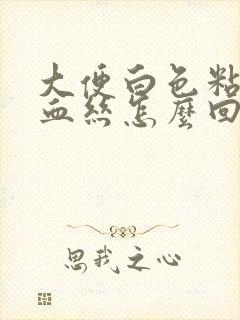 大便白色粘
血絲怎麼回
思我之心